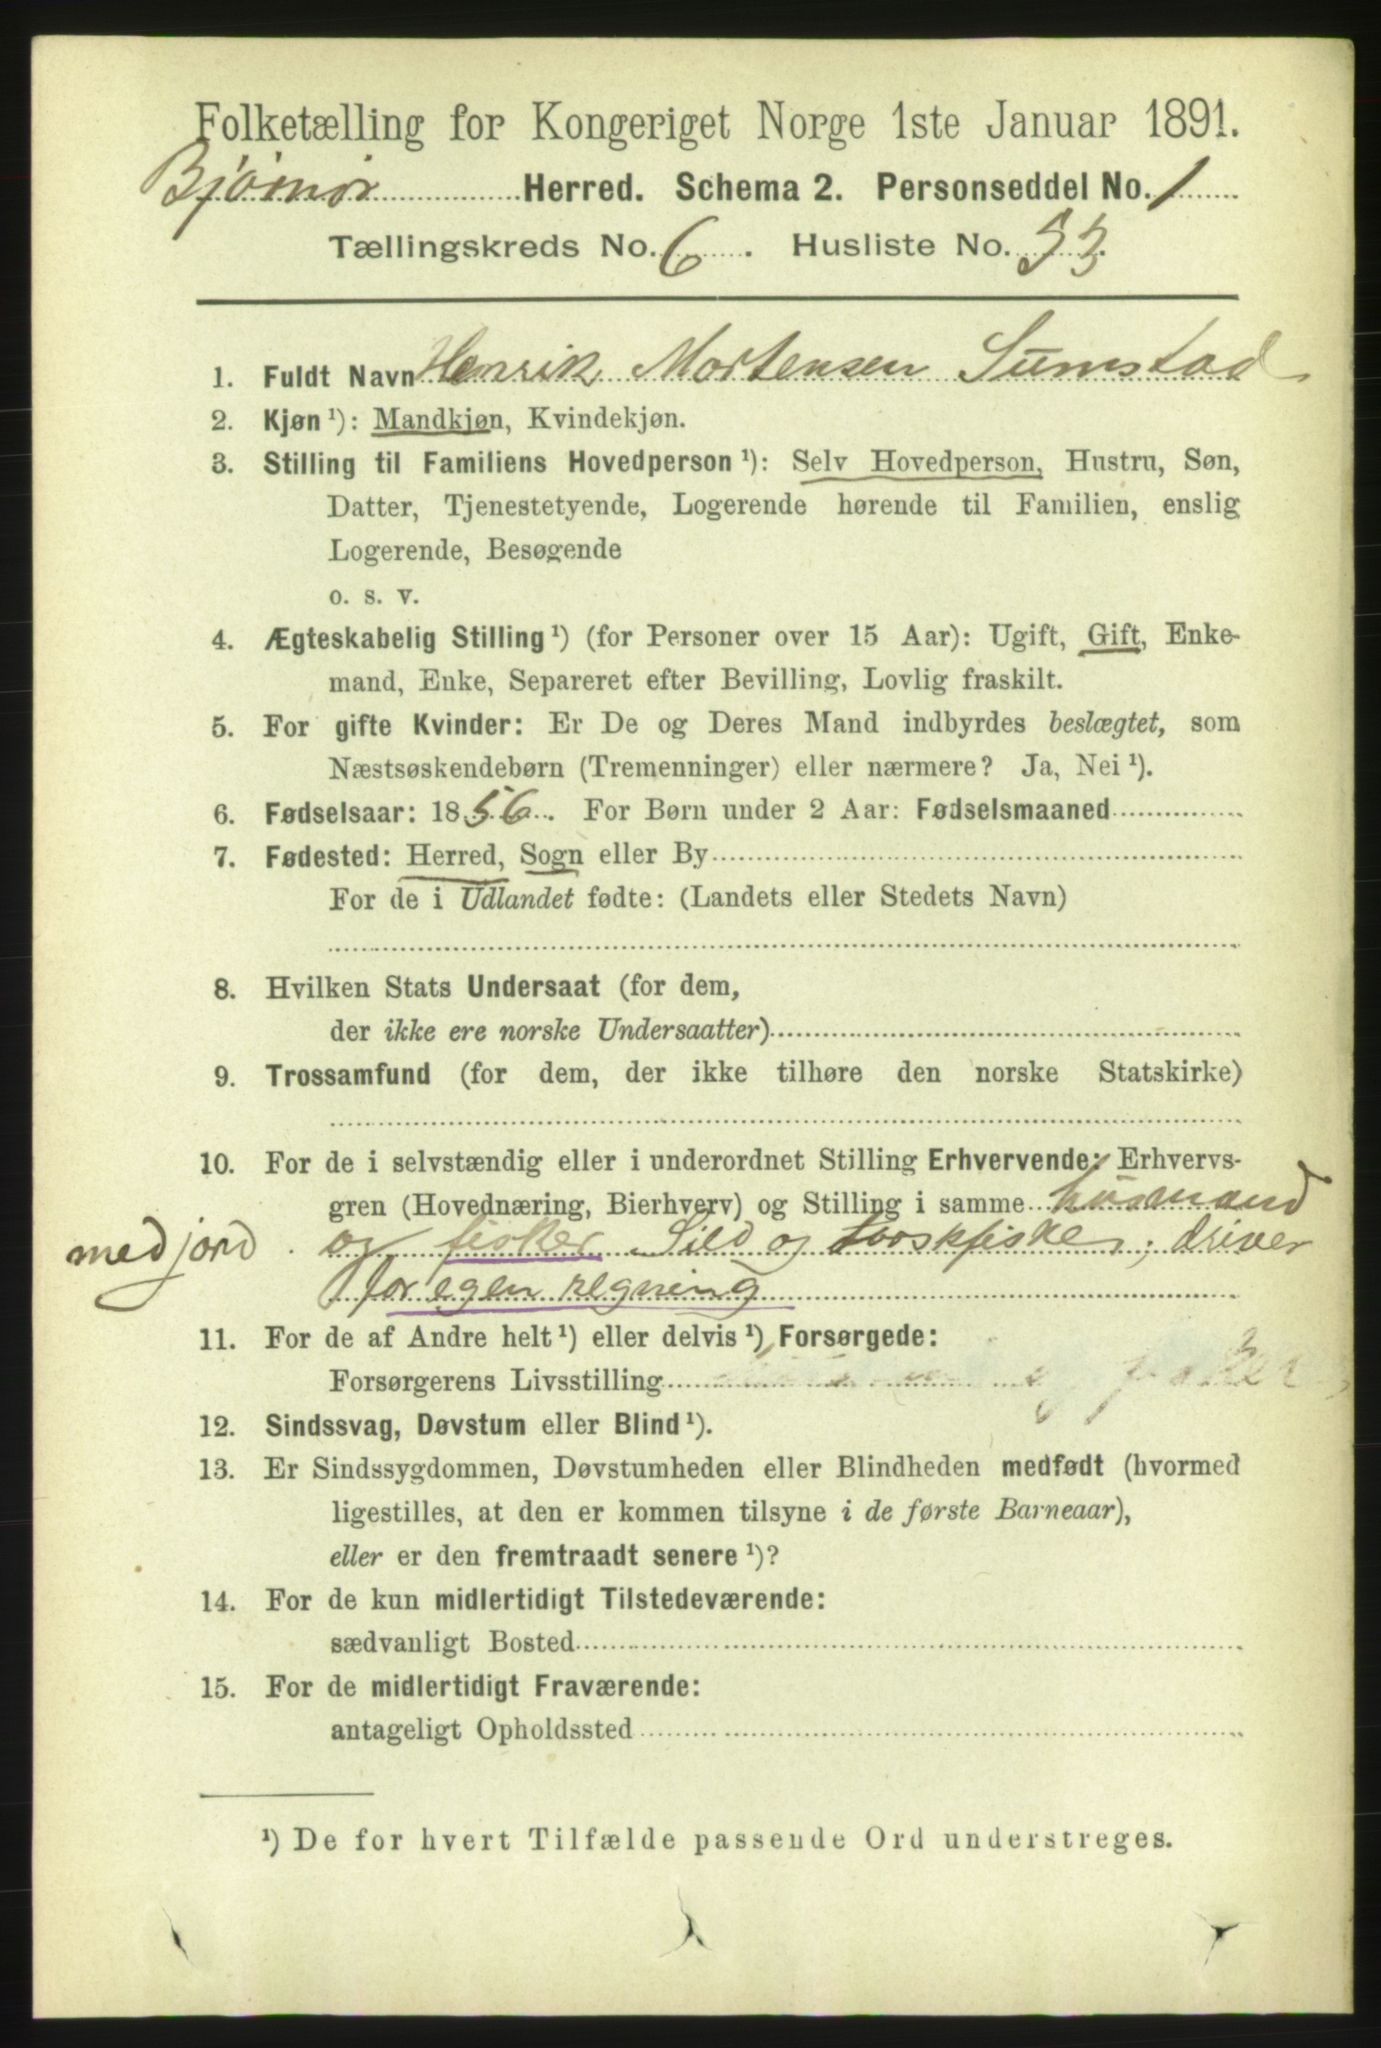 Folketælling for Kongeriget Norge 1ste Januar 1891.
Bjørnør Herred. Schema 2. Personseddel No. 1
Tællingskreds No. 6. Husliste No. 33.
1. Fuldt Navn Henrik Mortensen Sumstad
2. Kjøn ¹): Mandkjøn, Kvindekjøn.
3. Stilling til Familiens Hovedperson ¹): Selv Hovedperson, Hustru, Søn,
Datter, Tjenestetyende, Logerende hørende til Familien, enslig
Logerende, Besøgende
o. s. v.
4. Ægteskabelig Stilling ¹) (for Personer over 15 Aar): Ugift, Gift, Enke-
mand, Enke, Separeret efter Bevilling, Lovlig fraskilt.
5. For gifte Kvinder: Er De og Deres Mand indbyrdes beslægtet, som
Næstsøskendebørn (Tremenninger) eller nærmere? Ja, Nei ¹).
6. Fødselsaar: 1856. For Børn under 2 Aar: Fødselsmaaned
7. Fødested: Herred, Sogn eller By
For de i Udlandet fødte: (Landets eller Stedets Navn)
8. Hvilken Stats Undersaat (for dem,
der ikke ere norske Undersaatter)
9. Trossamfund (for dem, der ikke tilhøre den norske Statskirke)
10. For de i selvstændig eller i underordnet Stilling Erhvervende: Erhvervs-
gren (Hovednæring, Bierhverv) og Stilling i samme husmand
med jord og fisker Sild og torskfiske; driver
for egen regning
11. For de af Andre helt ¹) eller delvis ¹) Forsørgede:
Forsørgerens Livsstilling og fisker
12. Sindssvag, Døvstum eller Blind ¹).
13. Er Sindssygdommen, Døvstumheden eller Blindheden medfødt (hvormed
ligestilles, at den er kommen tilsyne i de første Barneaar),
eller er den fremtraadt senere ¹)?
14. For de kun midlertidigt Tilstedeværende:
sædvanligt Bosted
15. For de midlertidigt Fraværende:
antageligt Opholdssted
¹) De for hvert Tilfælde passende Ord understreges.